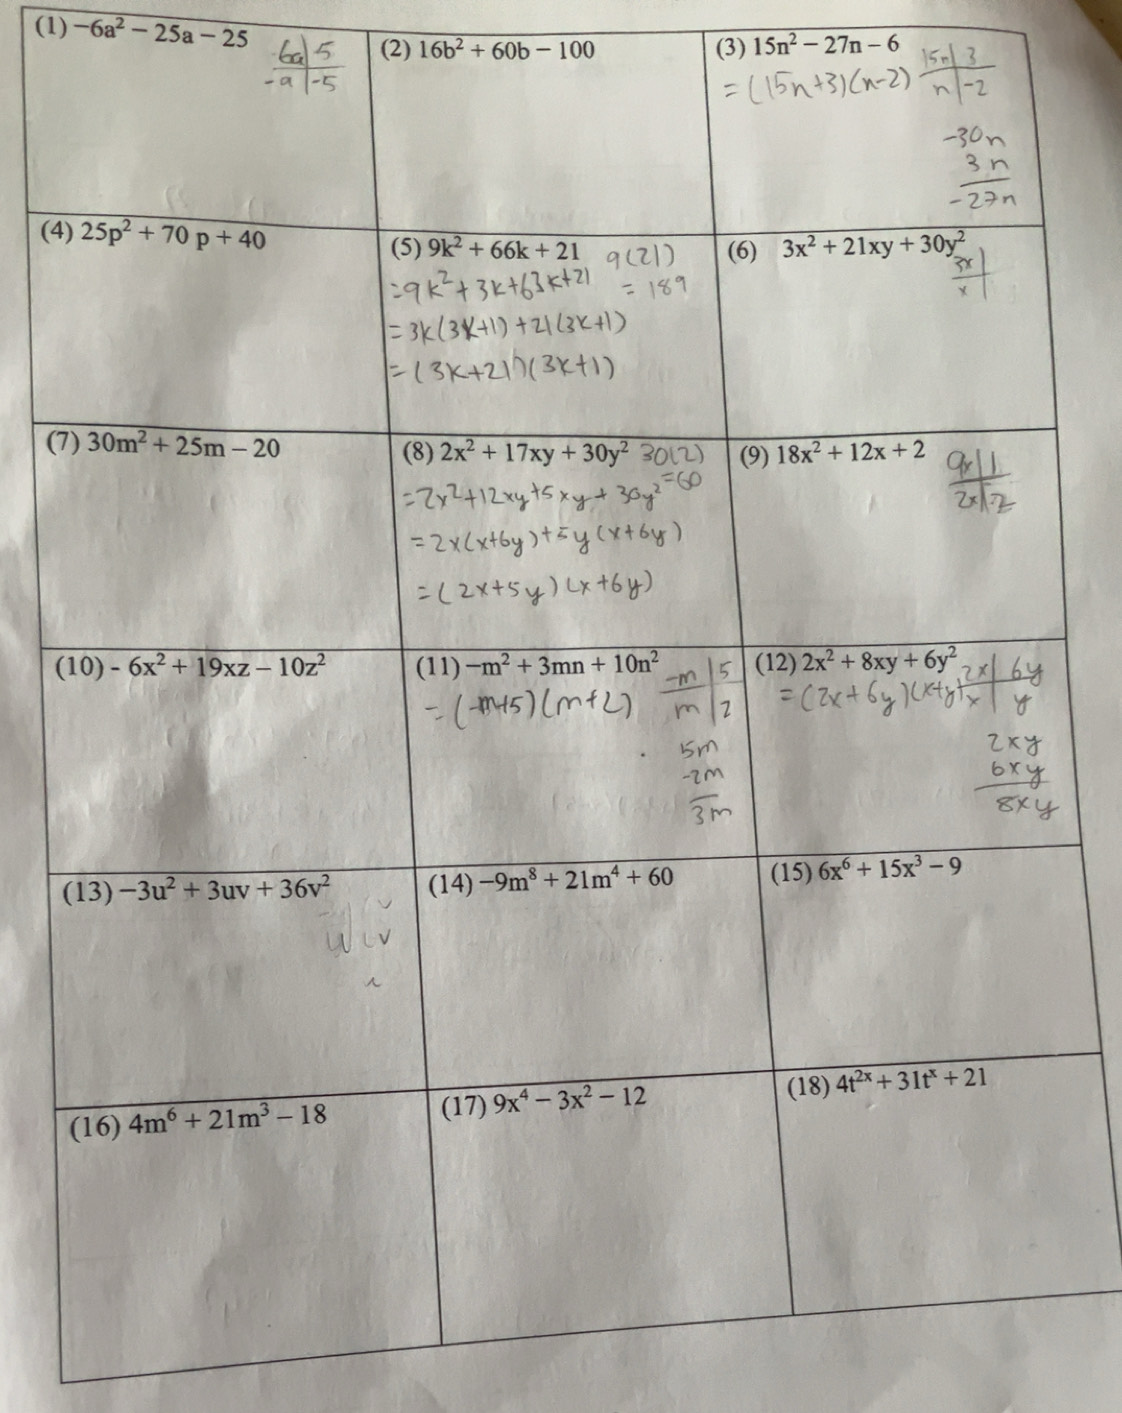 (1) −6a² − 25a − 25
6a 5
-a -5
(2) 16b² + 60b − 100
(3) 15n² − 27n − 6
15n 3
n -2
= (15n+3)(n-2)
-30n
3n
-27n
(4) 25p² + 70 p + 40
(5) 9k² + 66k + 21
9(21)
= 189
=9k²+3k+63k+21
= 3k(3k+1) +21(3k+1)
= (3k+21)(3k+1)
(6) 3x² + 21xy + 30y²
3x
x
(7) 30m² + 25m − 20
(8) 2x² + 17xy + 30y²
30(2)
=60
=2x²+12xy+5xy+30y²
= 2x(x+6y)+5y(x+6y)
= (2x+5y)(x+6y)
(9) 18x² + 12x + 2
9x 1
2x 2
(10) - 6x² + 19xz − 10z²
(11) −m² + 3mn + 10n²
-m 5
m 2
= (-m+5)(m+2)
5m
-2m
3m
(12) 2x² + 8xy + 6y²
2x 6y
x y
= (2x+6y)(x+y)
2xy
6xy
8xy
(13) −3u² + 3uv + 36v²
(14) −9m⁸ + 21m⁴ + 60
(15) 6x⁶ + 15x³ − 9
(16) 4m⁶ + 21m³ − 18
(17) 9x⁴ − 3x² − 12
(18) 4t²ˣ + 31tˣ + 21